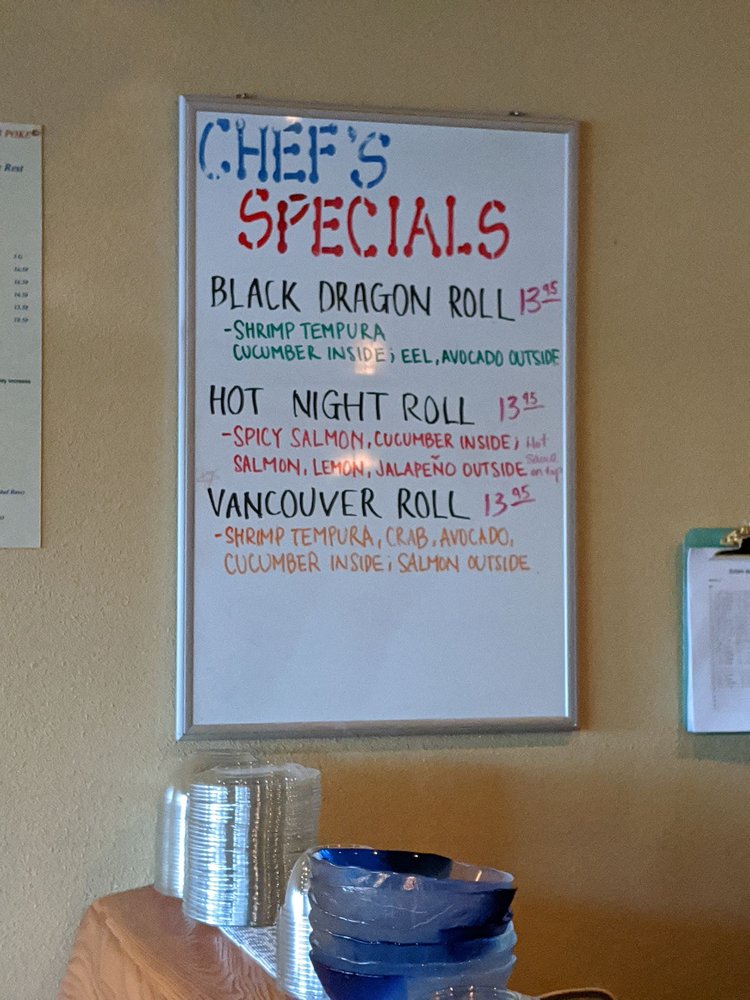 POKE
Rest
CHEF'S
SPECIALS
BLACK DRAGON ROLL 13.95
-SHRIMP TEMPURA
CUCUMBER INSIDE; EEL, AVOCADO OUTSIDE
HOT NIGHT ROLL 13.95
-SPICY SALMON, CUCUMBER INSIDE; Hot
SALMON, LEMON, JALAPEÑO OUTSIDE Sauce on top
VANCOUVER ROLL 13.95
-SHRIMP TEMPURA, CRAB, AVOCADO,
CUCUMBER INSIDE; SALMON OUTSIDE